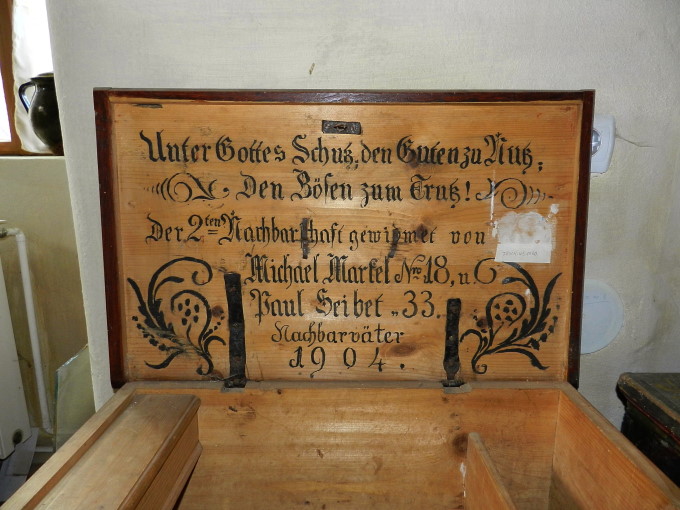 Unter Gottes Schutz, den Guten zu Nutz,
Den Bösen zum Trutz!
Der 2ten Nachbarschaft gewidmet von
Michael Markel Nro 18, u.
Paul Seibet „ 33.
Nachbarväter
1904.